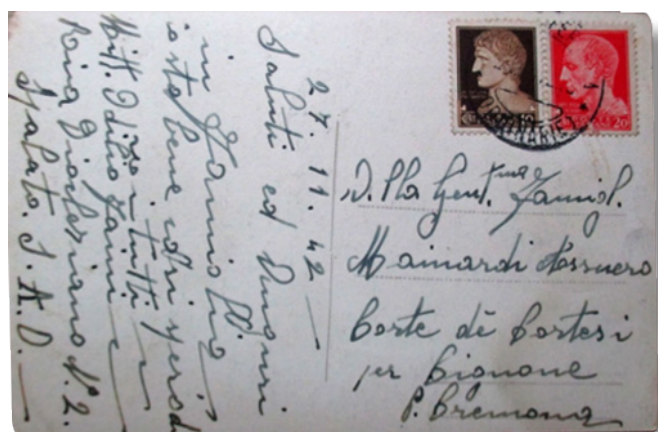 27.11.42
Saluti ed Auguri
in famiglia
io sto bene così spero di
voi tutti
Mitt. Odilio Zanni
Riva Diocleziano N°. 2.
Spalato. S. A. D.
Alla Gent.ma Famigl.
Mainardi Assuero
Corte de Cortesi
per Cignone
P. Cremona
20